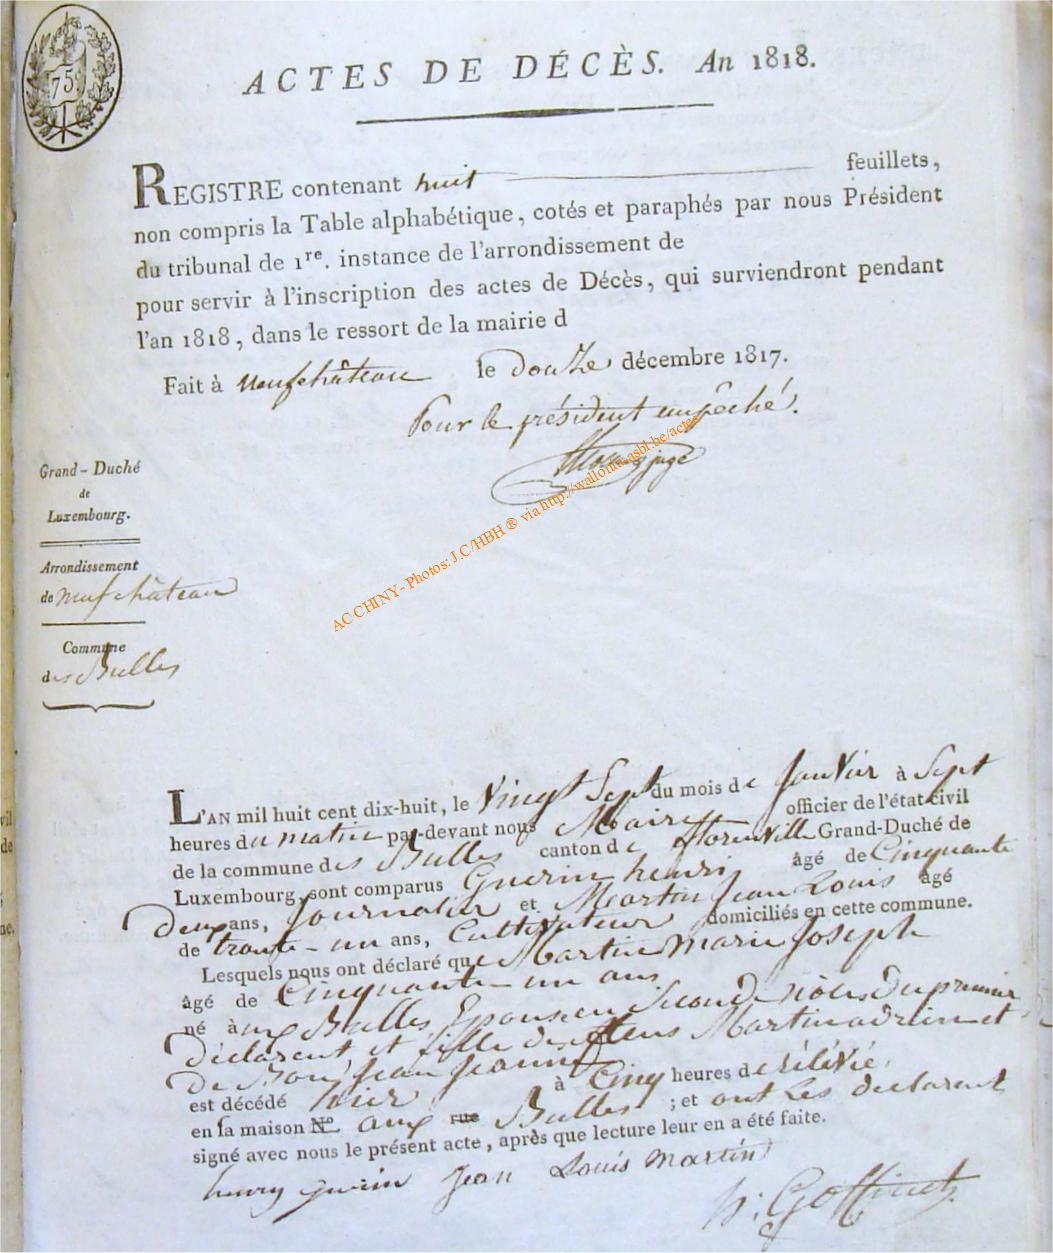 75c
ACTES DE DÉCÈS. An 1818.
REGISTRE contenant huit feuillets,
non compris la Table alphabétique, cotés et paraphés par nous Président
du tribunal de 1re. instance de l'arrondissement de
pour servir à l'inscription des actes de Décès, qui surviendront pendant
l'an 1818, dans le ressort de la mairie d
Fait à Neufchâteau le douze décembre 1817.
Pour le président empêché.
juge
AC CHINY - Photos: J.C/HBH ® via http://wallonia-asbl.be/actes
Grand-Duché
de
Luxembourg.
Arrondissement
de neufchâteau
Commune
des Bulles
L'AN mil huit cent dix-huit, le vingt Sept du mois de Janvier à Sept
heures du matin par-devant nous Maire officier de l'état civil
de la commune des Bulles canton de florenville Grand-Duché de
Luxembourg, sont comparus Guerin henri âgé de Cinquante
Deux ans, Journalier et Martin Jean Louis âgé
de trante-un ans, Cultivateur domiciliés en cette commune.
Lesquels nous ont déclaré que Martin Marie Joseph
âgé de Cinquante un ans
né aux Bulles Epouse en Seconde noces du premier
déclarent et fille de feus Martin adrien et
de Jean Jeanne
est décédé hier à Cinq heures de rélévée
en sa maison No. aux rue Bulles ; et ont les declarent
signé avec nous le présent acte, après que lecture leur en a été faite.
henry guerin Jean Louis martin
h: Goffinet